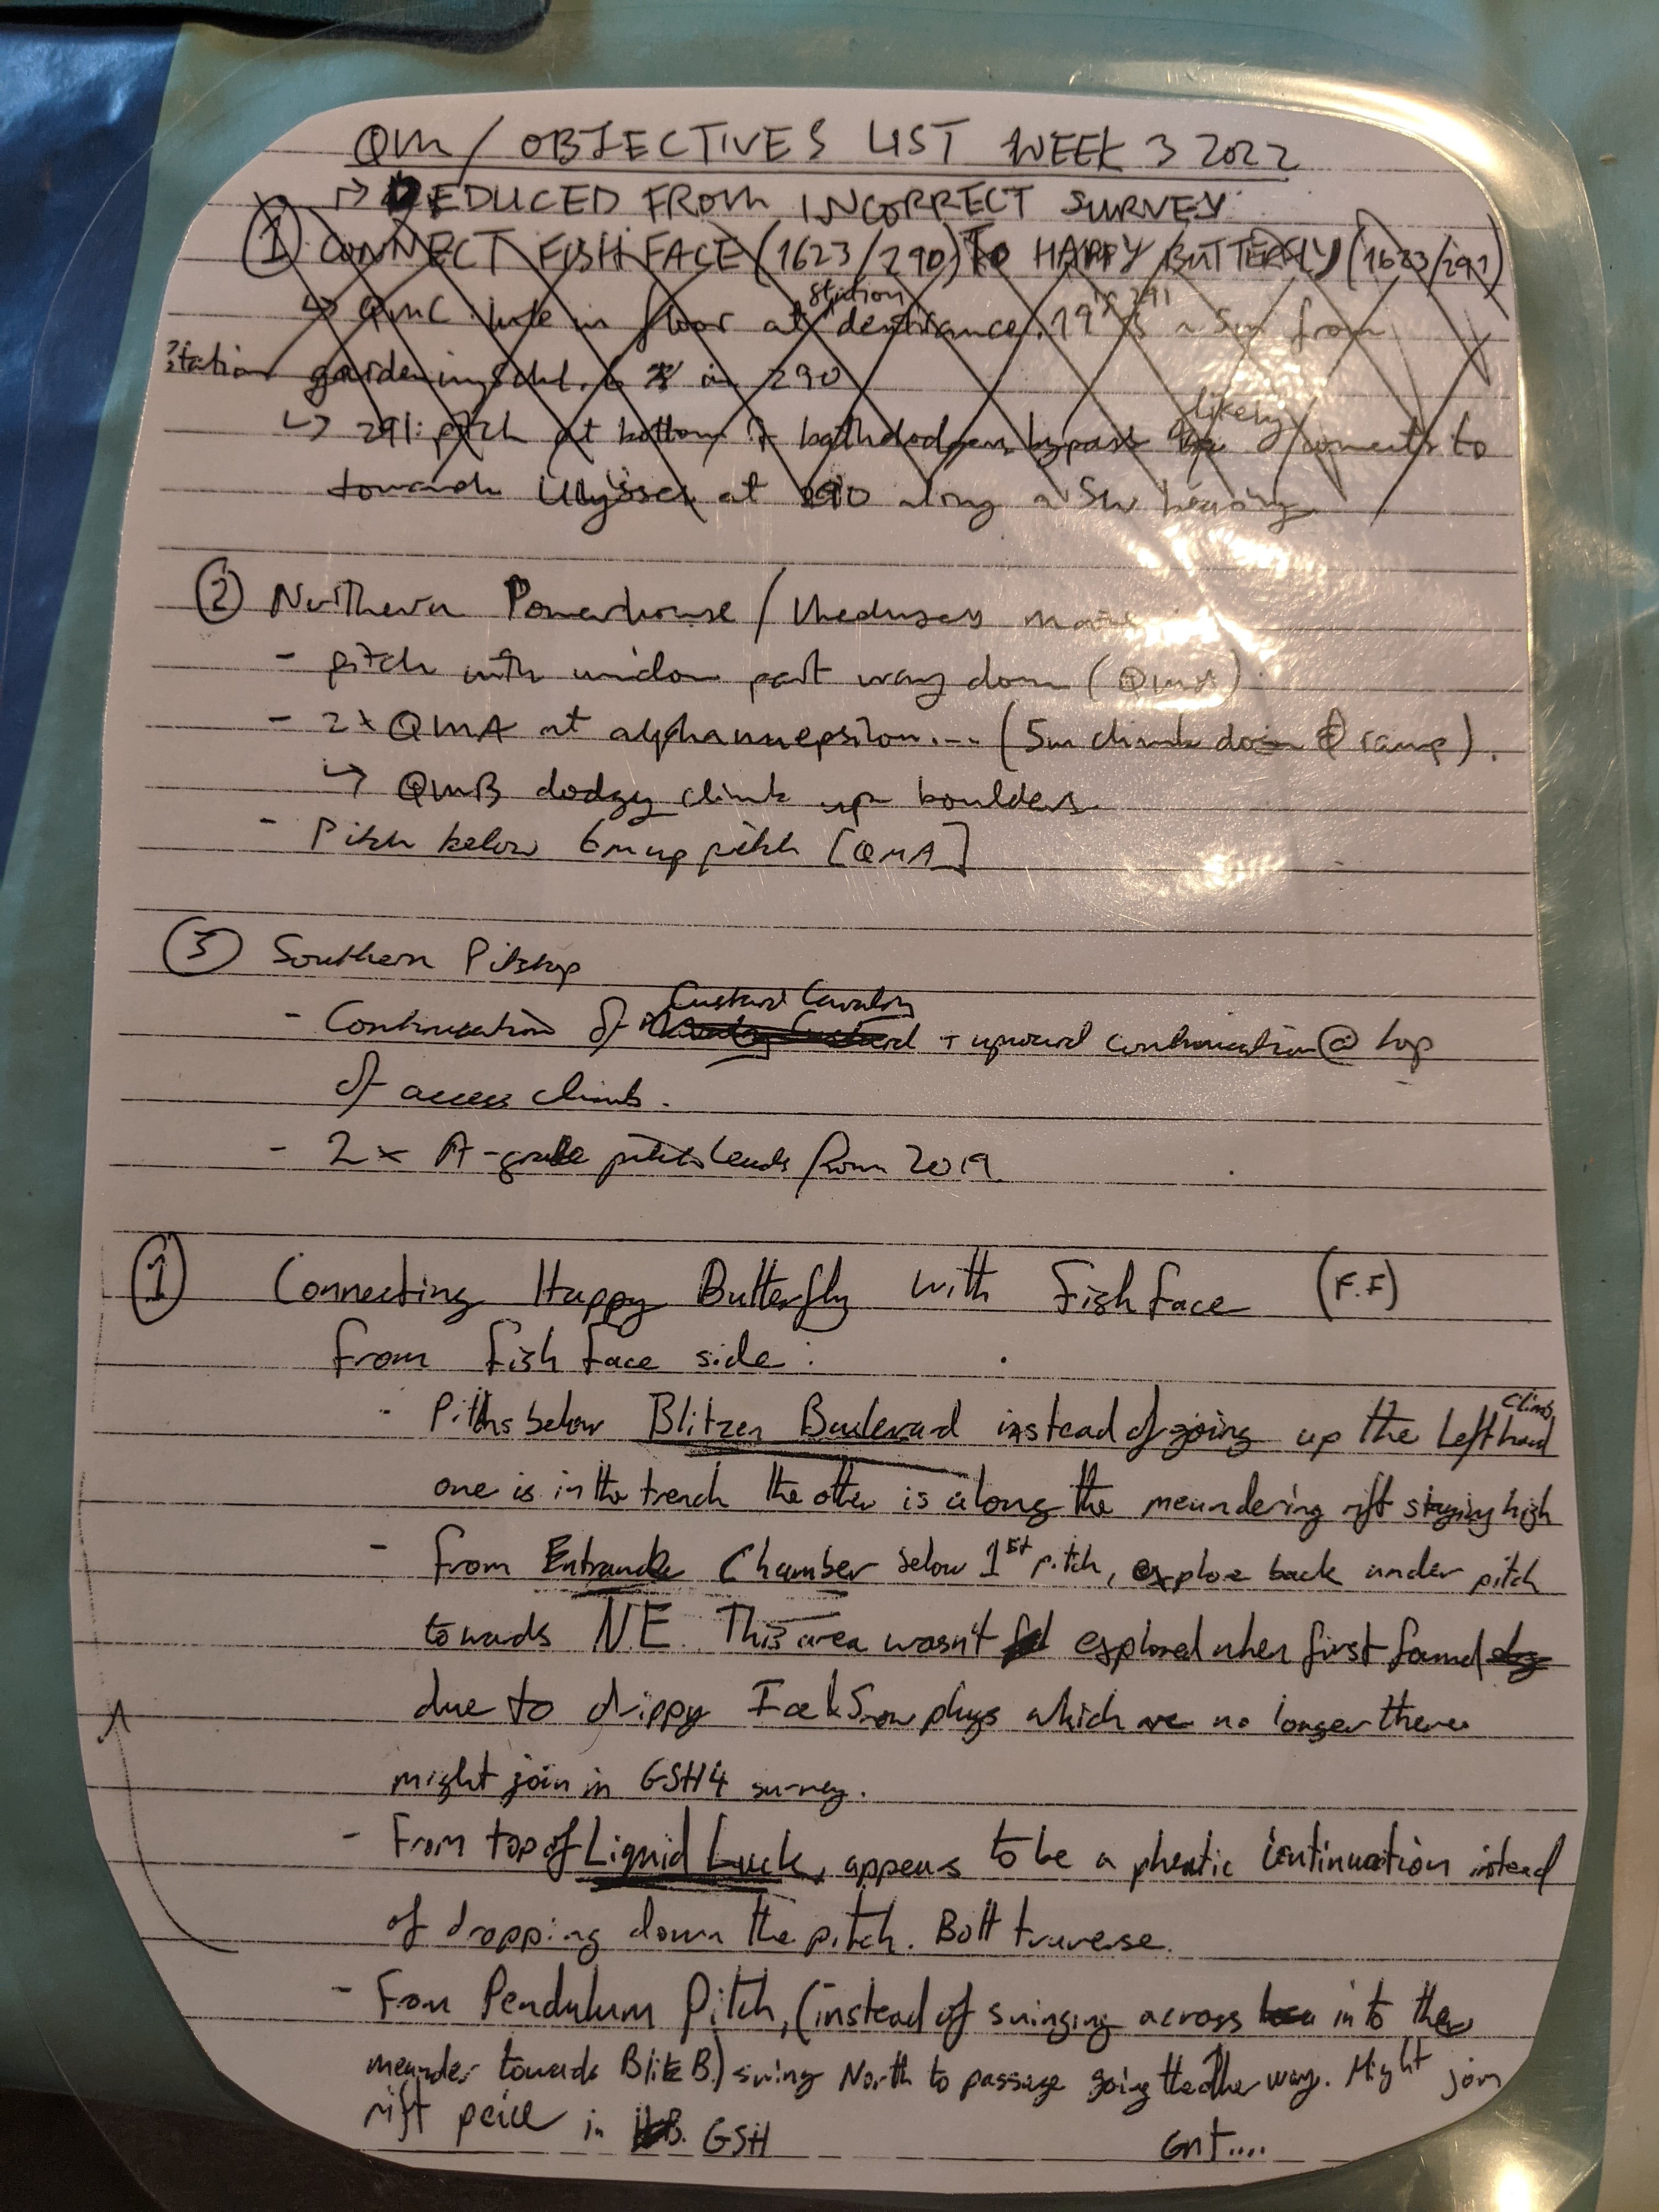 QM / OBJECTIVES LIST WEEK 3 2022
→ DEDUCED FROM INCORRECT SURVEY
① CONNECT FISHFACE (1623/290) TO HAPPY BUTTERFLY (1623/291)
↳ QMC hole in floor at station "dentrance.19" in 291 is ~5m from
station in 290
↳ 291: pitch at bottom of bypass likely connects to
towards Ulysses at 290 along a ~SW bearing
② Northern Powerhouse / Medusa's
- pitch with window part way down (QMA)
- 2x QMA at alphanuepsilon.... (5m climb down & ramp).
↳ QMB dodgy climb up boulders.
- Pitch below 6m up pitch [QMA]
③ Southern Pitstop
- Continuation of Custard Cavalry + upward continuation @ top
of access climb.
- 2x A-grade leads from 2019.
① Connecting Happy Butterfly with Fishface (F.F)
from fish face side:
- Pitchs below Blitzen Boulevard instead of going up the Left hand climb
one is in the trench the other is along the meandering rift staying high
- from Entrance Chamber below 1st pitch, explore back under pitch
towards NE. This area wasn't explored when first found
due to drippy Ice & Snow plugs which are no longer there
might join in GSH4 survey.
- From top of Liquid Luck, appears to be a phreatic continuation instead
of dropping down the pitch. Bolt traverse.
- From Pendulum Pitch, (instead of swinging across into the
meander towards Blitz B.) swing North to passage going the other way. Might join
rift peice in GSH
Cnt....